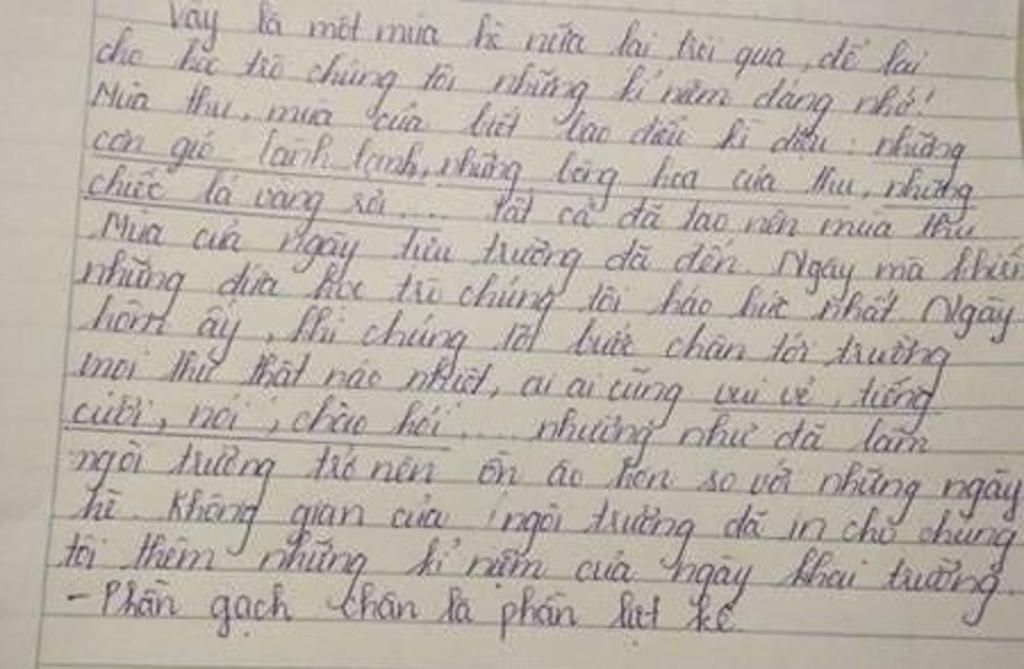 Vậy là một mùa hè nữa lại trôi qua, để lại
cho học trò chúng tôi những kỉ niệm đáng nhớ!
Mùa thu, mùa của biết bao điều kì diệu: những
cơn gió lành lạnh, những bông hoa của thu, những
chiếc lá vàng rơi.... tất cả đã tạo nên mùa thu
Mùa của ngày tựu trường đã đến. Ngày mà khiến
những đứa học trò chúng tôi háo hức nhất. Ngày
hôm ấy, khi chúng tôi bước chân tới trường
mọi thứ thật náo nhiệt, ai ai cũng vui vẻ, tiếng
cười, nói, chào hỏi.... nhường như đã làm
ngôi trường trở nên ồn ào hơn so với những ngày
hè. Không gian của ngôi trường đã in cho chúng
tôi thêm những kỉ niệm của ngày khai trường.
- Phần gạch chân là phần liệt kê